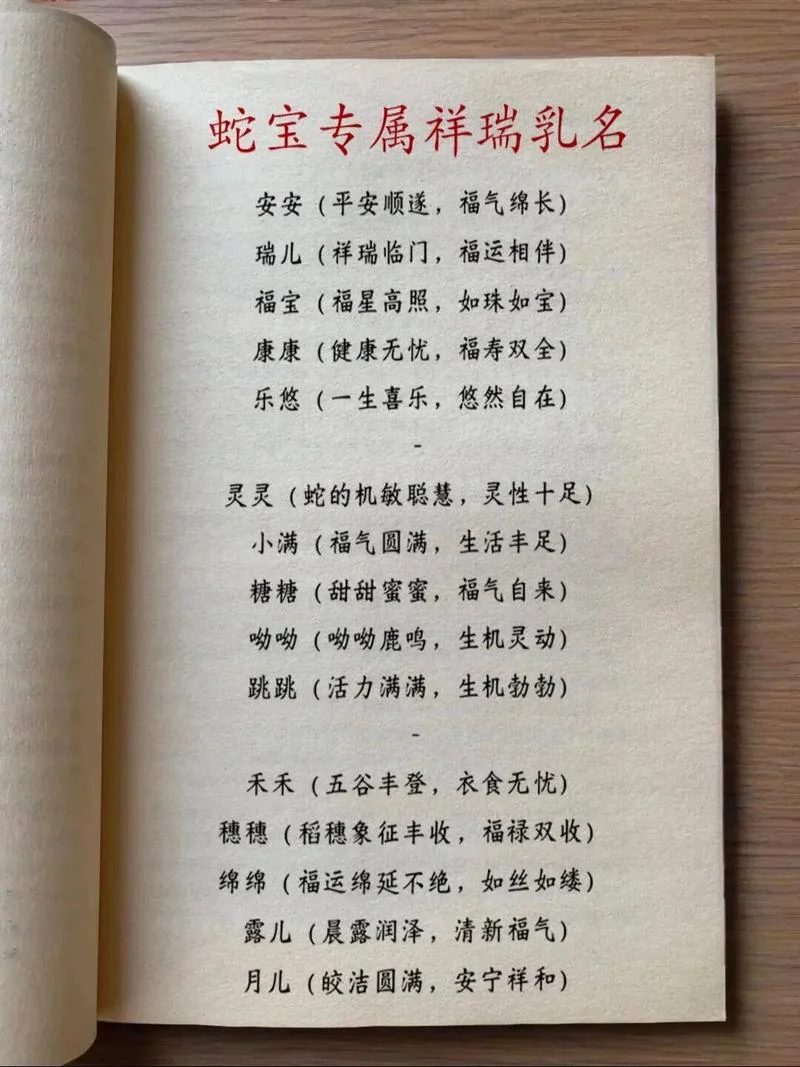 蛇宝专属祥瑞乳名
安安（平安顺遂，福气绵长）
瑞儿（祥瑞临门，福运相伴）
福宝（福星高照，如珠如宝）
康康（健康无忧，福寿双全）
乐悠（一生喜乐，悠然自在）
-
灵灵（蛇的机敏聪慧，灵性十足）
小满（福气圆满，生活丰足）
糖糖（甜甜蜜蜜，福气自来）
呦呦（呦呦鹿鸣，生机灵动）
跳跳（活力满满，生机勃勃）
-
禾禾（五谷丰登，衣食无忧）
穗穗（稻穗象征丰收，福禄双收）
绵绵（福运绵延不绝，如丝如缕）
露儿（晨露润泽，清新福气）
月儿（皎洁圆满，安宁祥和）